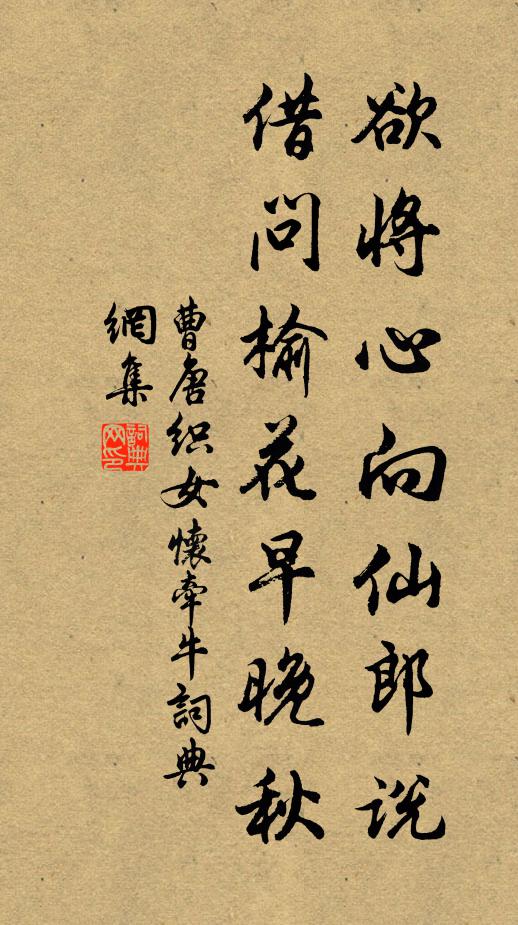 欲将心向仙郎说
借问榆花早晚秋
曹唐织女懷牽牛詞典
網集
詞典
网印